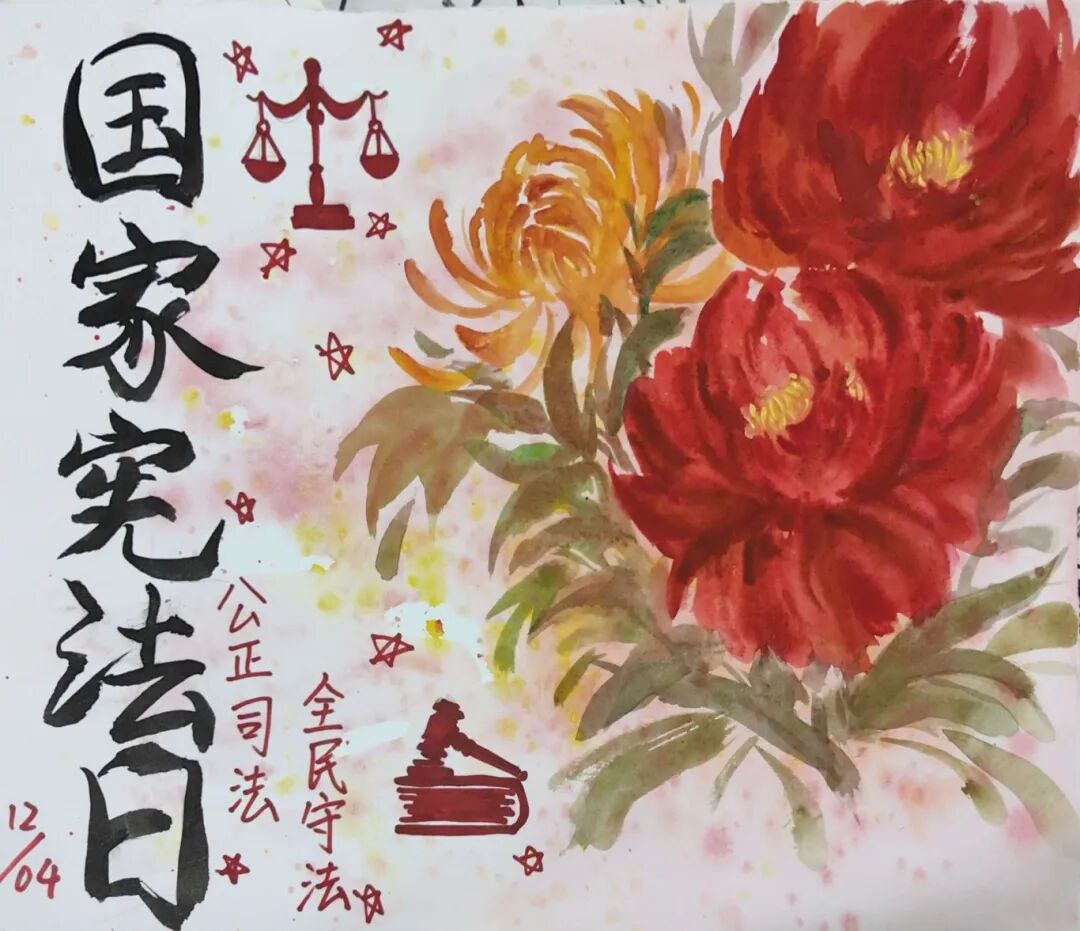 国家宪法日
公正司法
全民守法
12/04